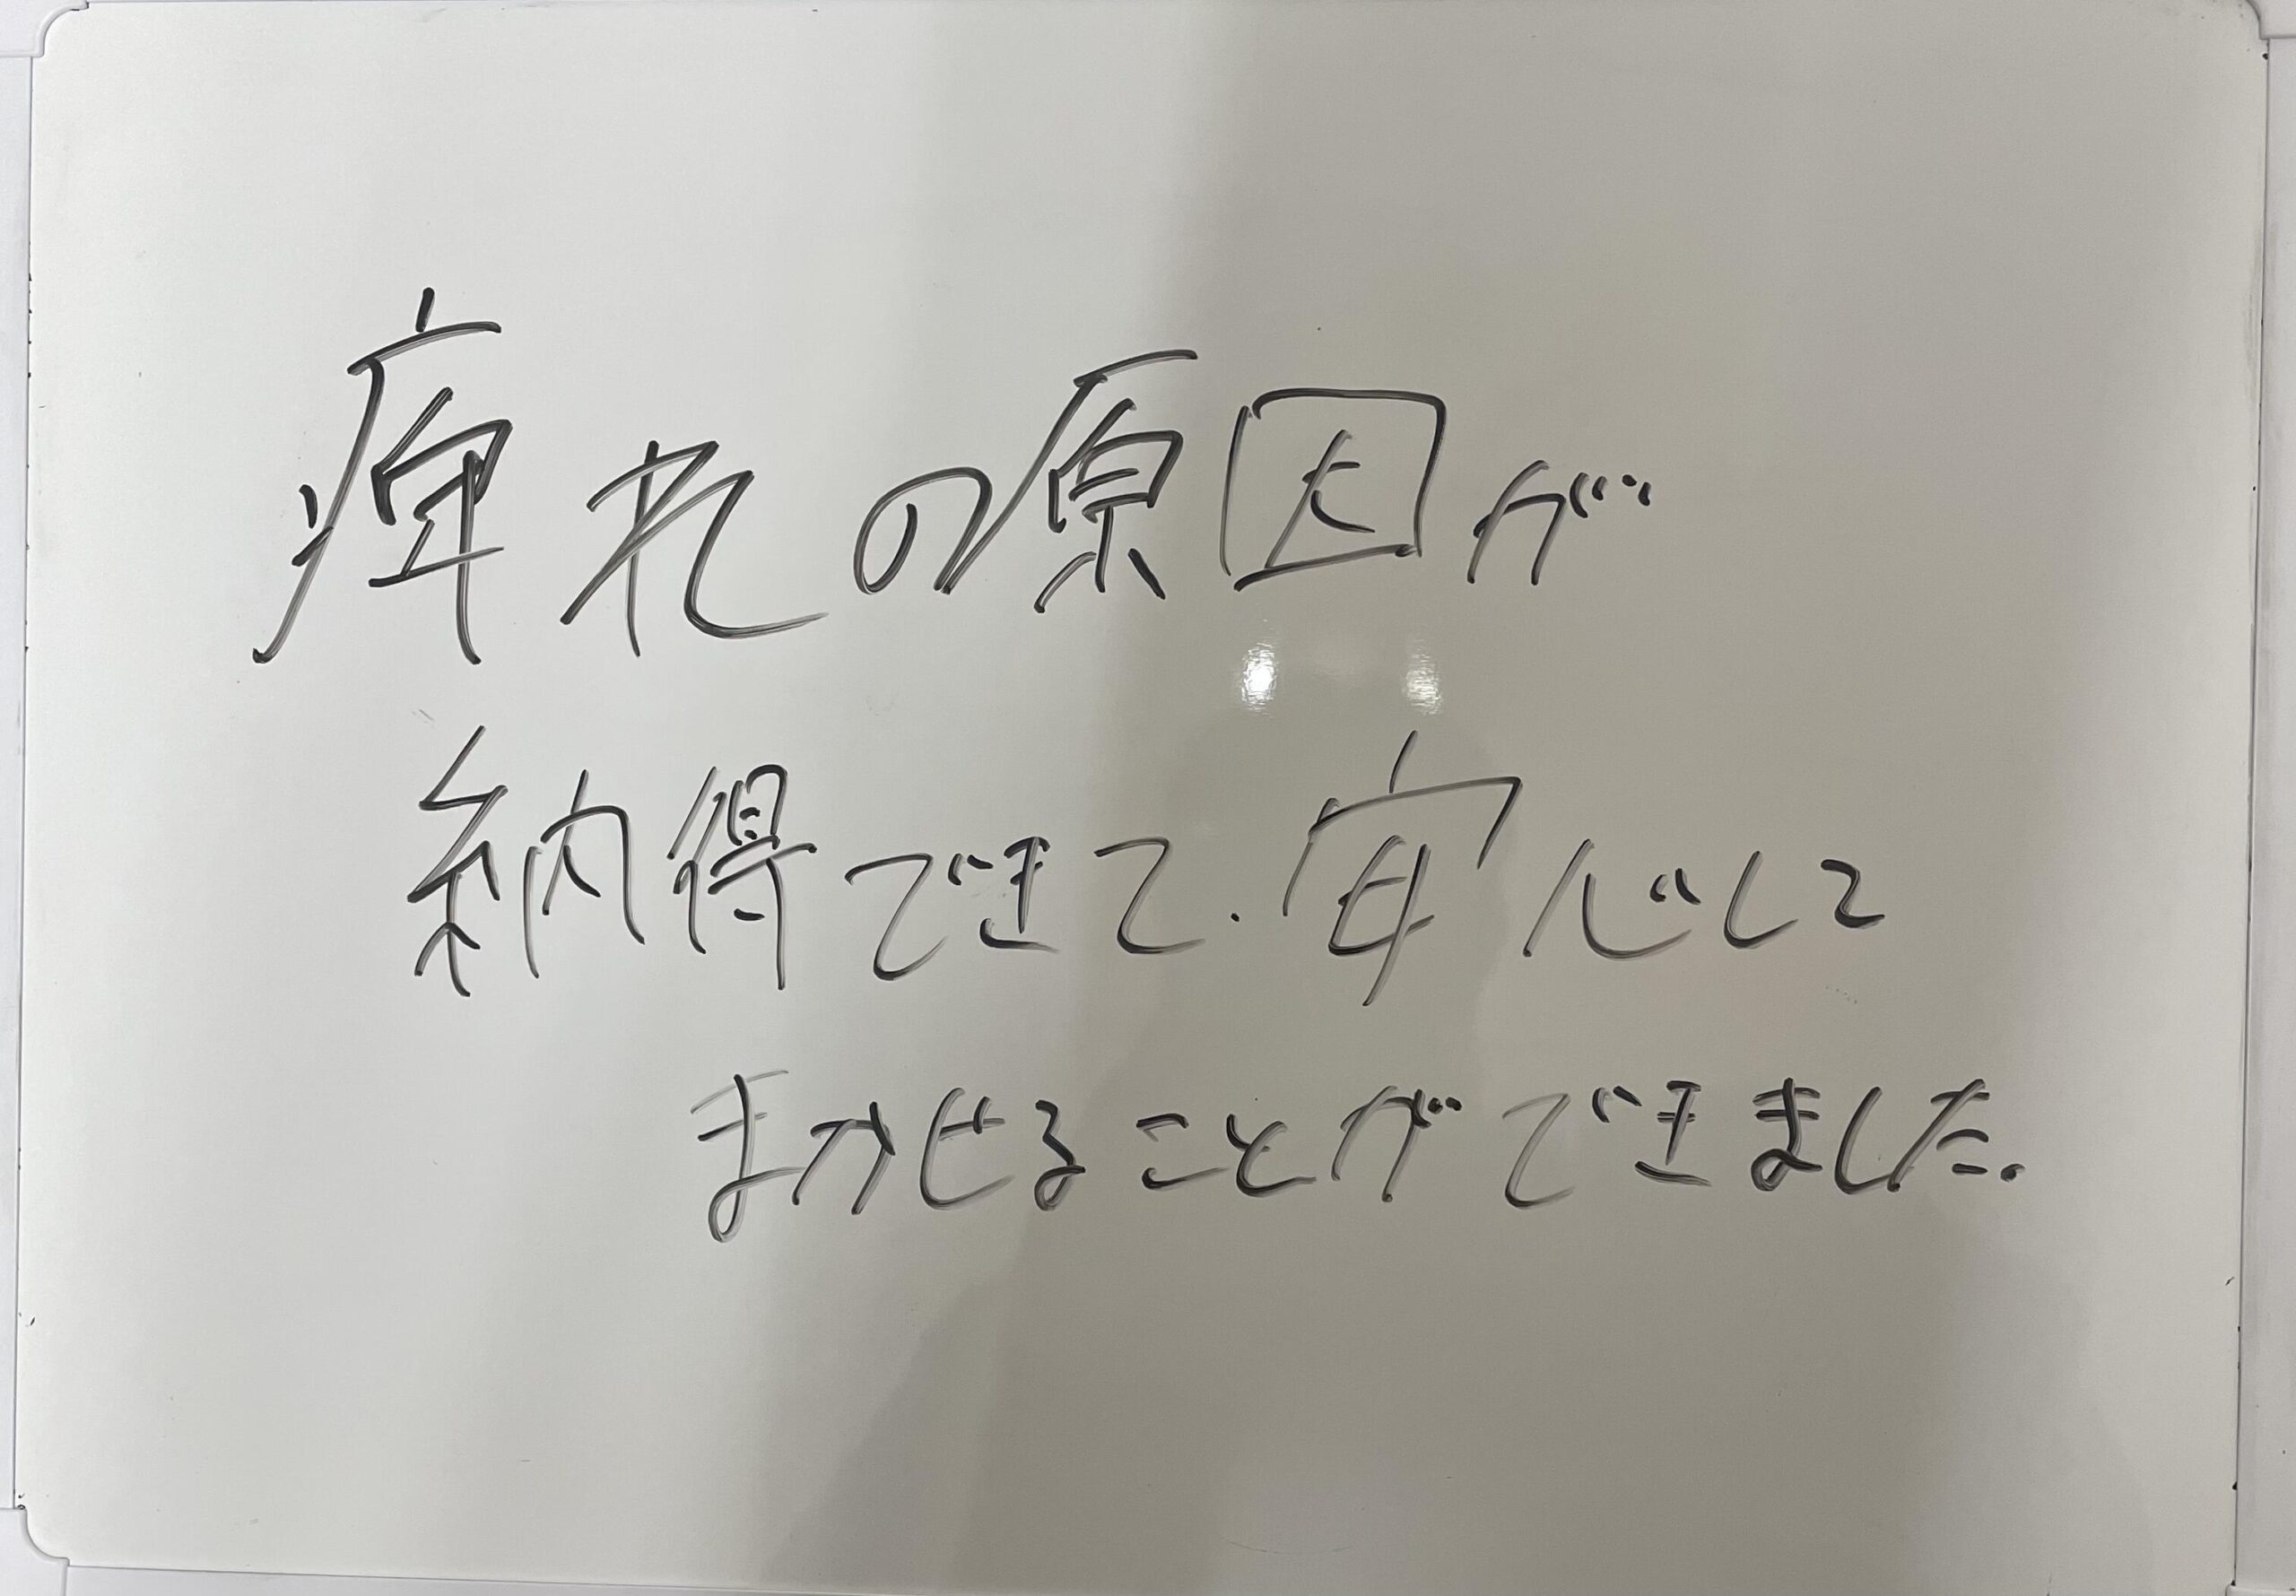 痺れの原因が
納得できて、安心して
まかせることができました。